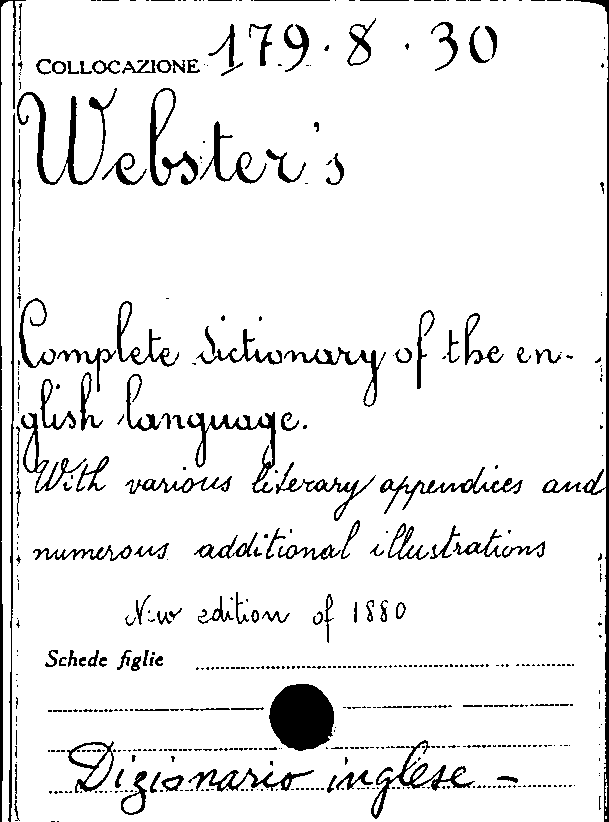 COLLOCAZIONE 179·8·30
Webster's
Complete dictionary of the en-
glish language.
With various literary appendices and
numerous additional illustrations
New edition of 1880
Schede figlie
Dizionario inglese -